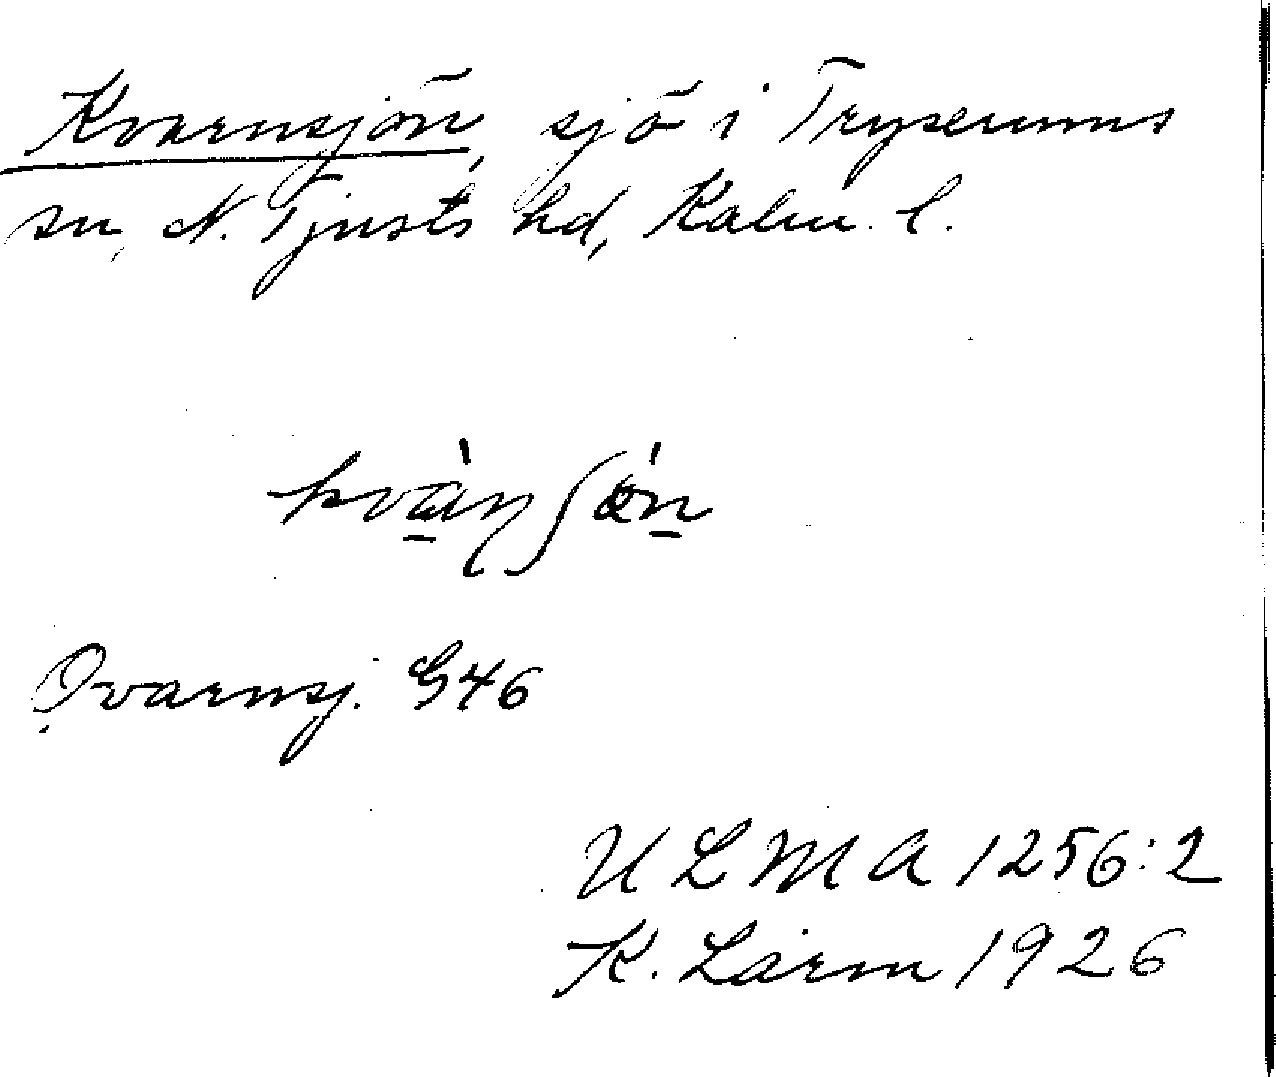 Kvarnsjön, sjö i Tryserums
sn, N. Tjusts hd, Kalm. l.
Qvarnsj. G46
ULMA 1256:2
K. Lärm 1926